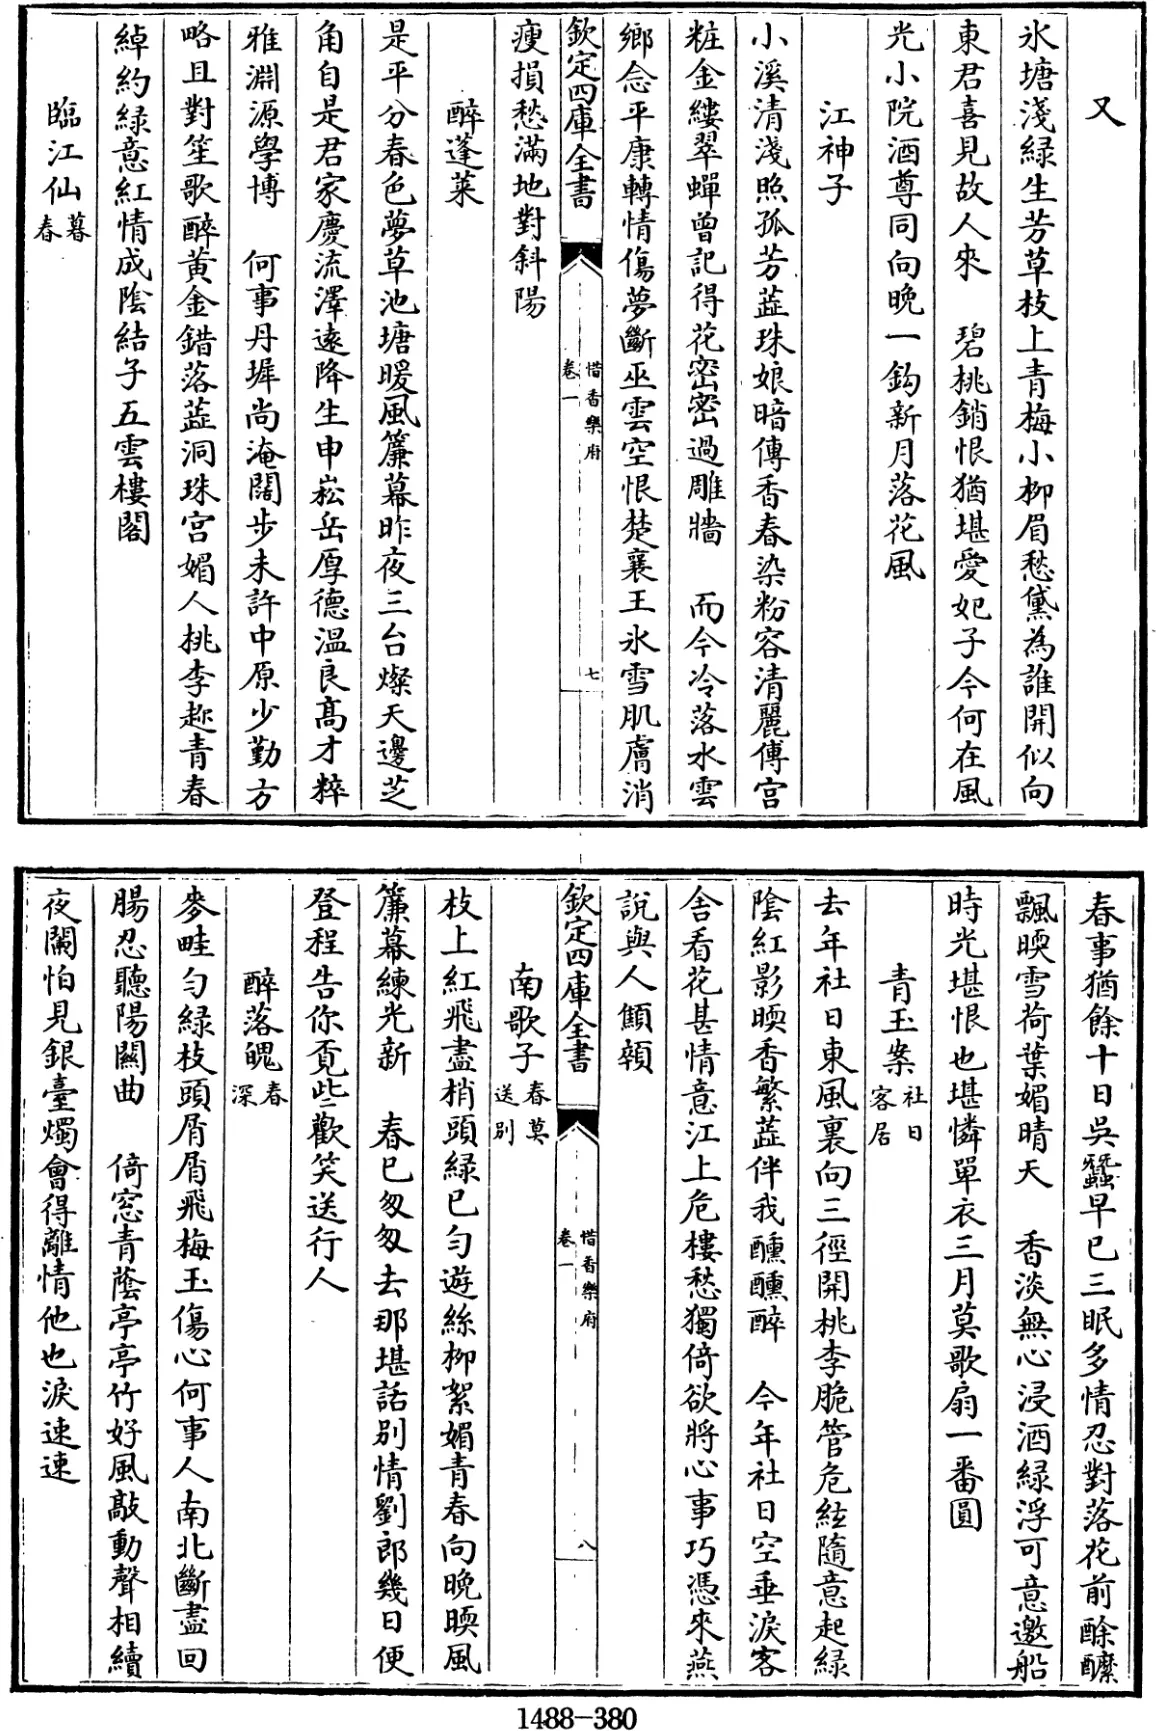 又
氷塘淺綠生芳草枝上青梅小柳眉愁黛為誰開似向
東君喜見故人來　碧桃銷恨猶堪愛妃子今何在風
光小院酒尊同向晚一鈎新月落花風
江神子
小溪清淺照孤芳蕋珠娘暗傳香春染粉容清麗傅宮
粧金縷翠蟬曾記得花密密過雕牆　而今冷落水雲
鄉念平康轉情傷夢斷巫雲空恨楚襄王氷雪肌膚消
欽定四庫全書
惜香樂府
卷一
七
瘦損愁滿地對斜陽
醉蓬萊
是平分春色夢草池塘暖風簾幕昨夜三台燦天邊芝
角自是君家慶流澤遠降生申崧岳厚德溫良高才粹
雅淵源學博　何事丹墀尚淹闊步未許中原少勤方
略且對笙歌醉黃金錯落蕋洞珠宮媚人桃李趂青春
綽約綠意紅情成陰結子五雲樓閣
臨江仙暮春
春事猶餘十日吳蠶早已三眠多情忍對落花前酴醾
飄暎雪荷葉媚晴天　香淡無心浸酒綠浮可意邀船
時光堪恨也堪憐單衣三月莫歌扇一番圓
青玉案社日客居
去年社日東風裏向三徑開桃李脆管危絃隨意起綠
陰紅影暎香繁蕋伴我醺醺醉　今年社日空垂淚客
舍看花甚情意江上危樓愁獨倚欲將心事巧憑來燕
說與人顦顇
欽定四庫全書
惜香樂府
卷一
八
南歌子春莫送別
枝上紅飛盡梢頭綠已勻遊絲柳絮媚青春向晚暎風
簾幕練光新　春已匆匆去那堪話別情劉郎幾日便
登程告你覔些歡笑送行人
醉落魄春深
麥畦勻綠枝頭屑屑飛梅玉傷心何事人南北斷盡回
腸忍聽陽關曲　倚窓青蔭亭亭竹好風敲動聲相續
夜闌怕見銀臺燭會得離情他也淚速速
1488—380